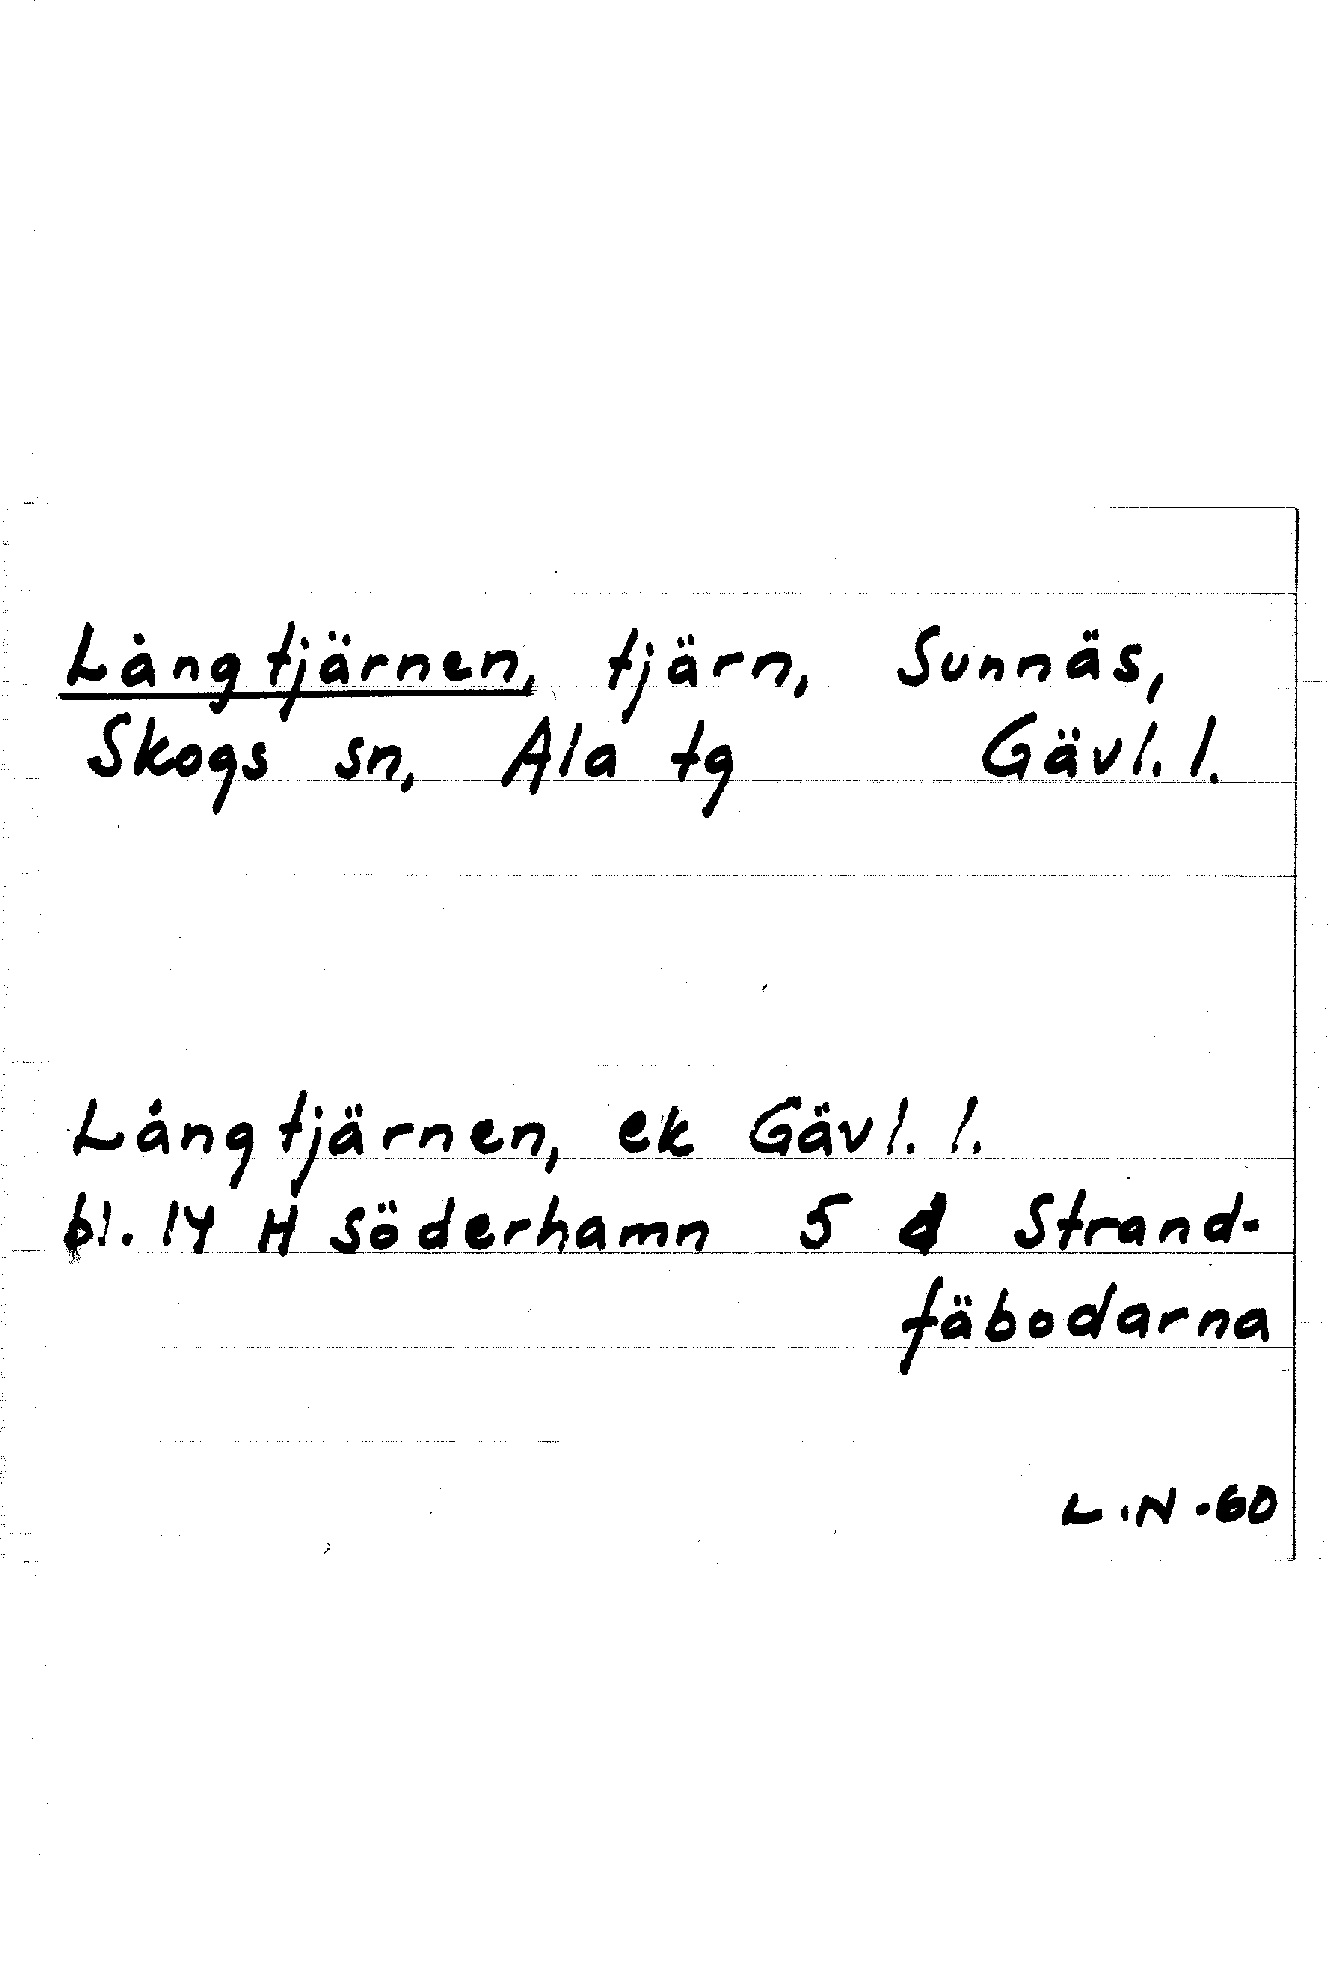 Långtjärnen, tjärn, Sunnäs,
Skogs sn, Ala tg Gävl. l.
Långtjärnen, ek Gävl. l.
bl. 14 H Söderhamn 5 d Strand-
fäbodarna
L.N.60